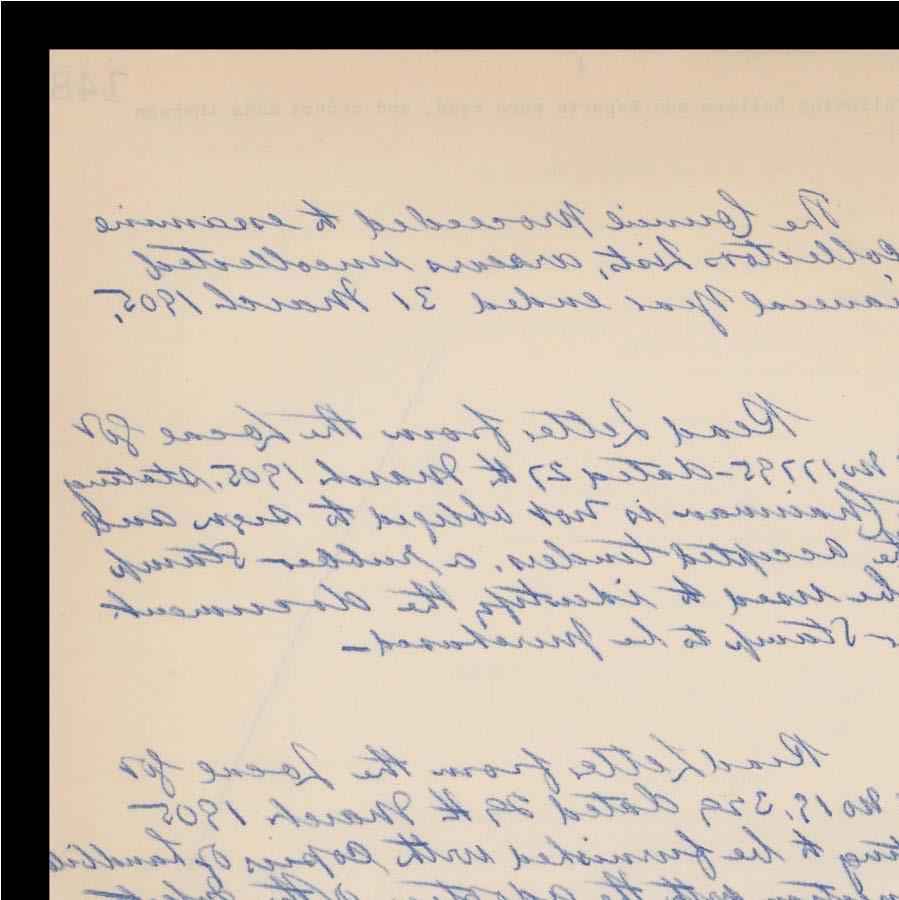 148
Following Letters and Reports were read, and orders made thereon
The Council proceeded to examine
Collectors List, arrears uncollected
ancial Year ended 31 March 1905.
Read Letter from the Local Gov
No 17795-dated 27th March 1905. stating
Chairman is not obliged to sign and
the accepted tenders. a rubber Stamp
be used to identify the document
- Stamp to be purchased -
Read Letter from the Local Gov
No 19.329 dated 29th March 1905
ting to be furnished with Copies of
with the of the